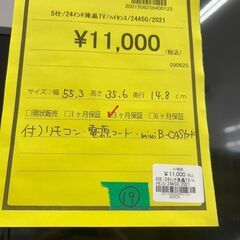 2001508256400123
S仕/24インチ液晶TV/ハイセンス/24A50/2021
¥11,000
(税込)
090625
サイズ:幅 55.3 高さ 35.6 奥行 14.8 cm
□現状販売 □1ヶ月保証 ☑3ヶ月保証 □6ヶ月保証
付)リモコン・電源コード・mini B-CASカード
⑲
¥11,000